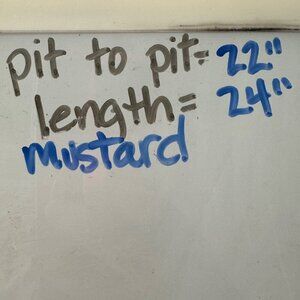 pit to pit= 22"
length= 24"
mustard